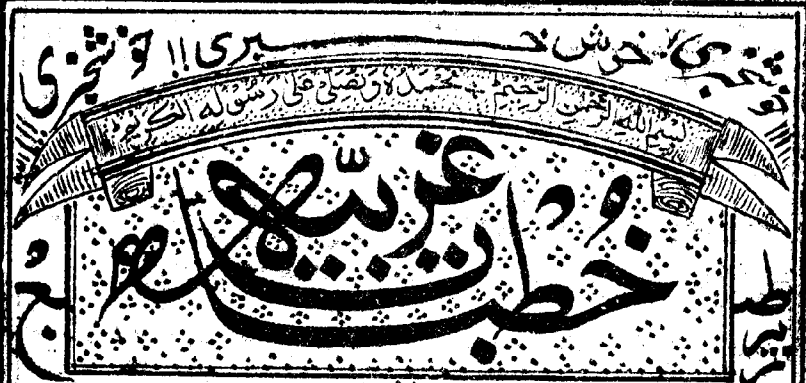 خوشخبری خوش خبری !! خوشخبری
بسم الله الرحمن الرحيم + نحمده ونصلى على رسوله الكريم
خطبات غربیّہ
زیر طبع